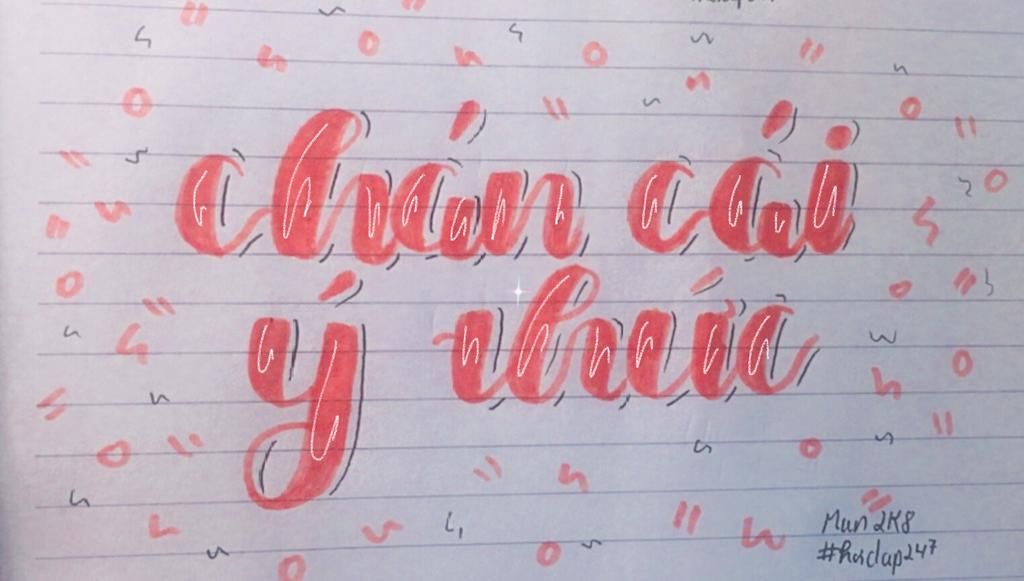 chán cái
ý thức
Mun 2K8
#hoclap247